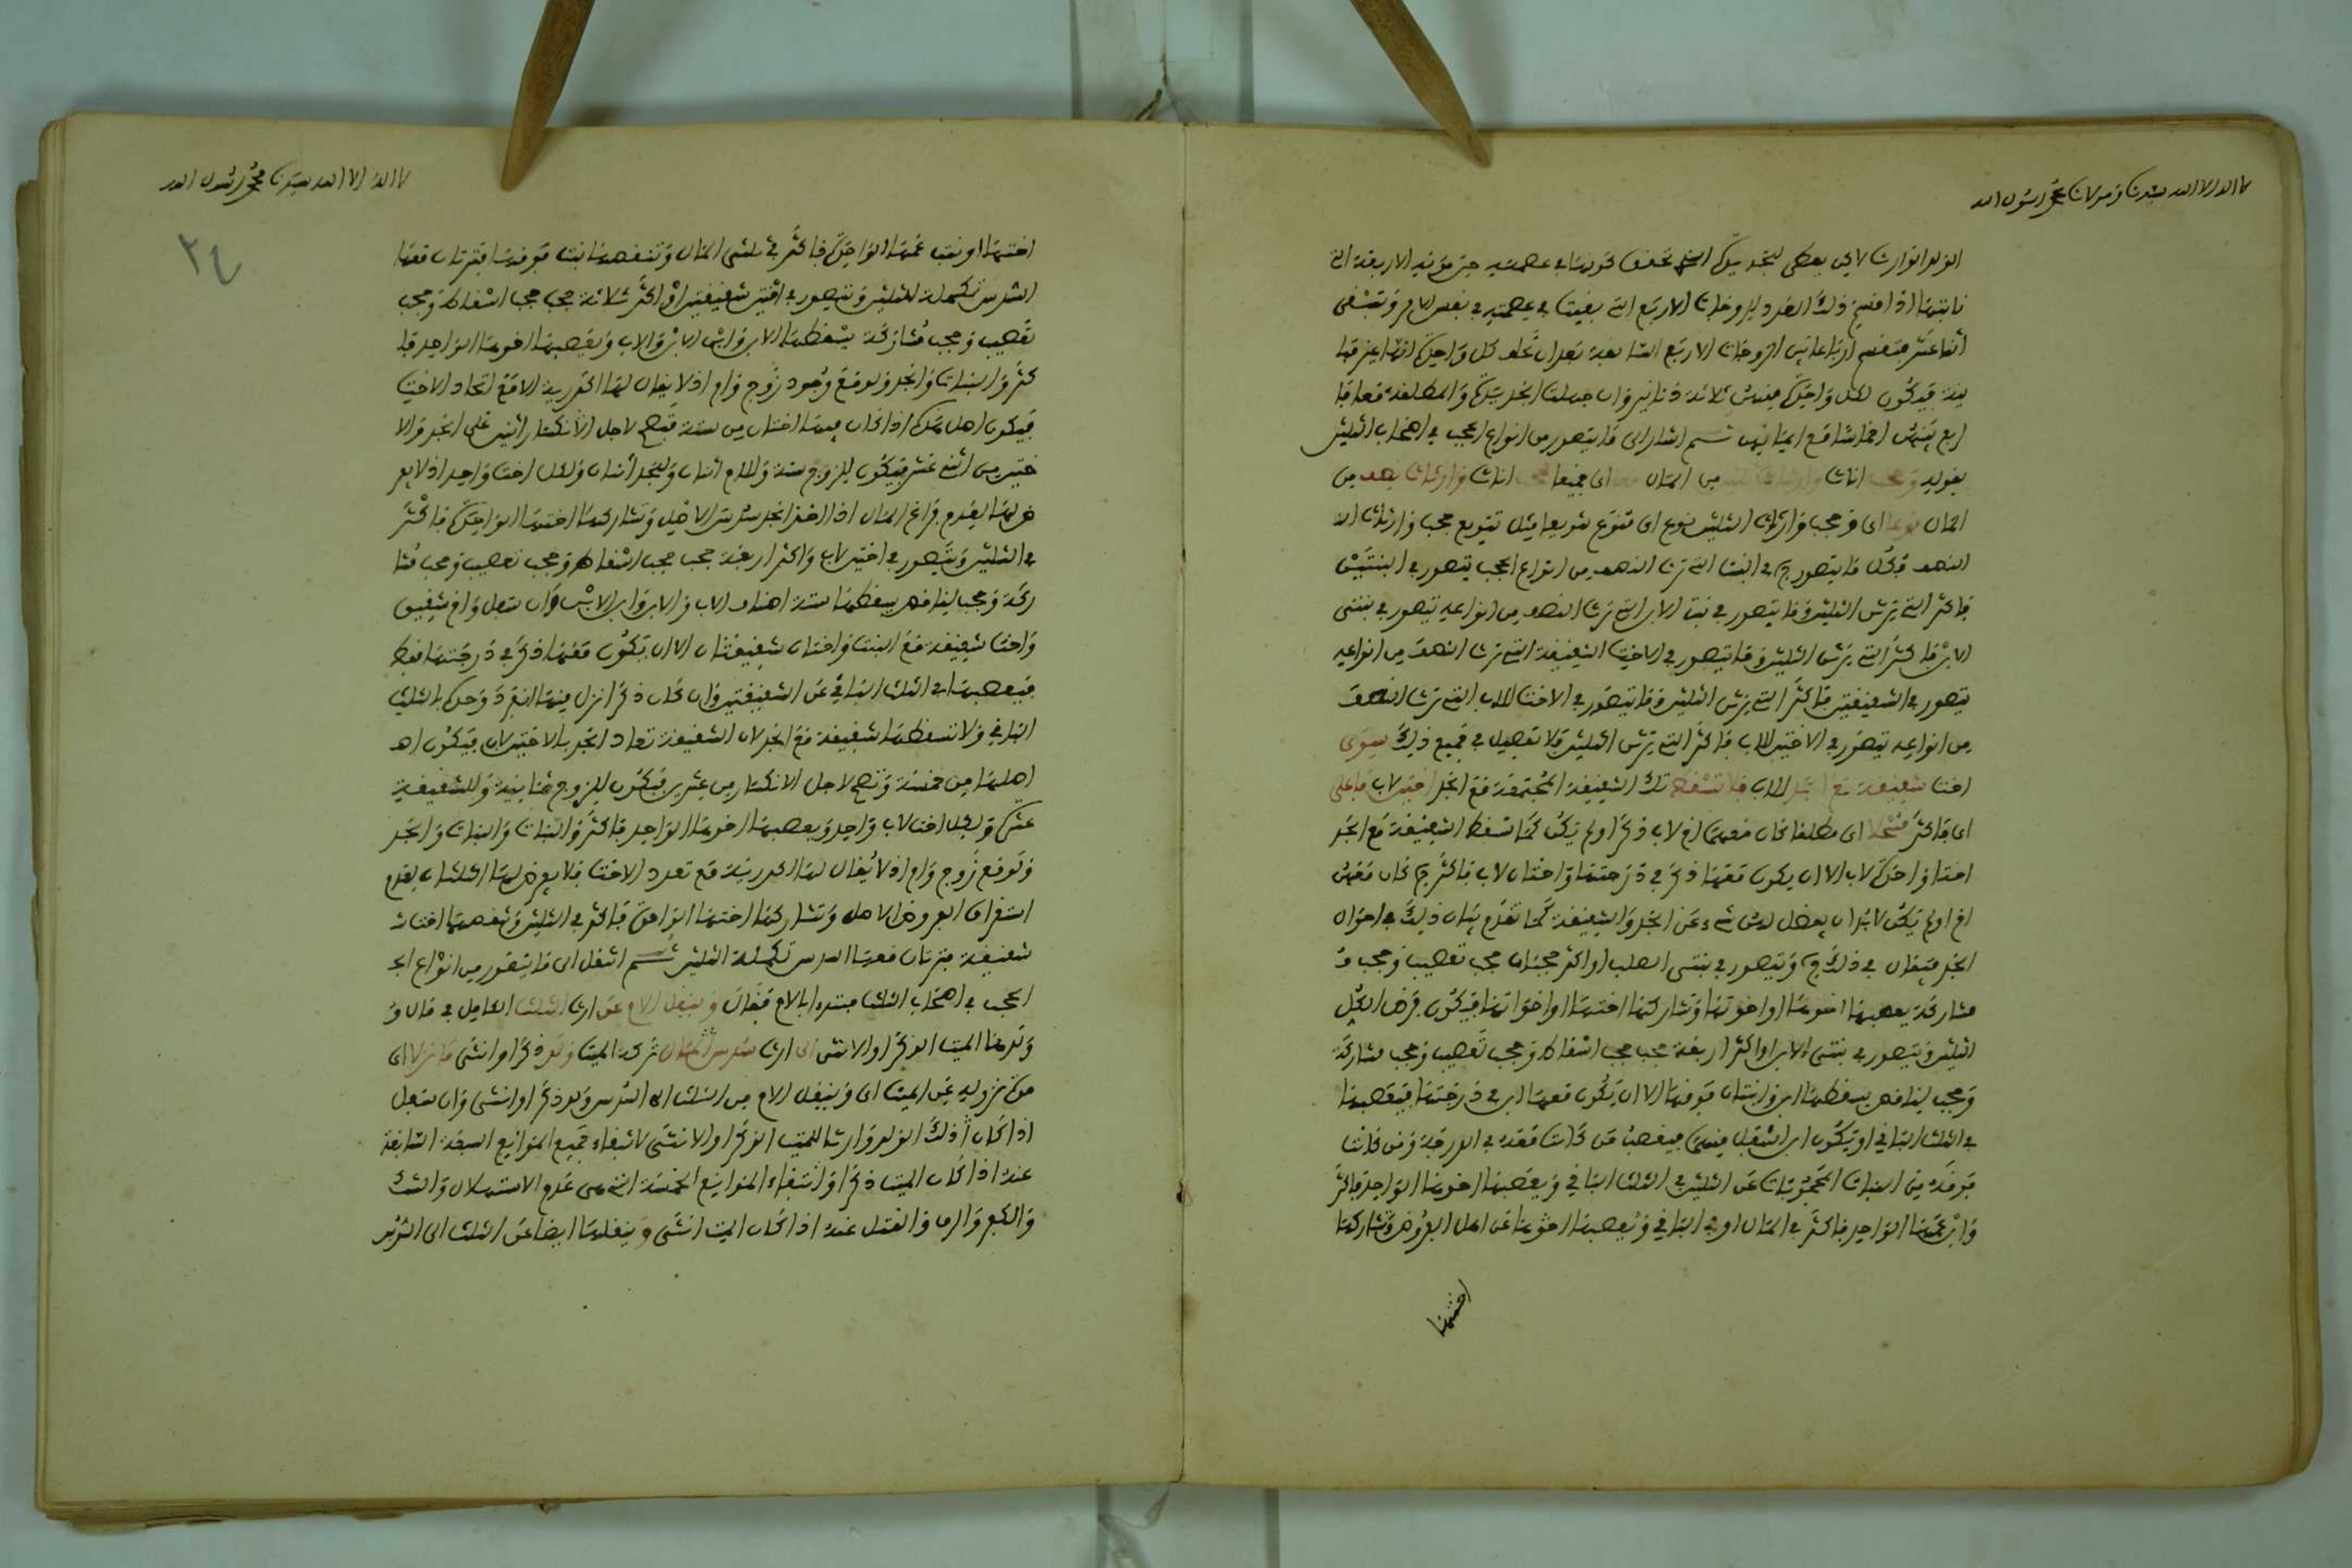 لا اله الا الله سيدنا ومولانا محمد رسول الله
الولد الوارث لاى يعطى
نابتها اذا قسم ذلك الفرد للزوجات الاربع التى بقيت فى عصمته فى نفس الامر وتبقى
اثنا عشر الزوجات الاربع السابقة بعد ان كل واحدة
فيكون لكل واحدة منهن ثلاثة دنانير وان
اربع ثم اشار الى ما يتصور من انواع الحجب فى اصحاب الثلثين
بقوله وحجب اناث من المال اى جميعا اناث وارثات نصف من
المال نوعا اى وحجب وارثات الثلثين نوع اى تنوع تنويعا مثل تنويع حجب وارثات
النصف فكل ما يتصور فى البنت التى ترث النصف من انواع الحجب يتصور فى البنتين
فاكثر التى ترث الثلثين وما يتصور فى بنت الابن التى ترث النصف من انواعه يتصور فى بنتى
الابن فاكثر التى ترث الثلثين وما يتصور فى الاخت الشقيقة التى ترث النصف من انواعه
يتصور فى الشقيقتين فاكثر التى ترث الثلثين وما يتصور فى الاخت للاب التى ترث النصف
من انواعه يتصور فى الاختين للاب فاكثر التى ترث الثلثين فلا تفصيل فى جميع ذلك سوى
اخت شقيقة مع الجد للاب فلا تسقط تلك الشقيقة المجتمعة مع الجد اختين لاب فاعلى
اى فاكثر مسجلا اى مطلقا كان معهما اخ لاب ذكرا ولم يكن كما تسقط الشقيقة مع الجد
اختا واحدة لاب الا ان يكون معها ذكر فى درجتها واختان لاب فاكثر كان معهن
اخ او لم يكن لابد ان يفضل لهن شىء عن الجد والشقيقة كما تقدم بيان ذلك فى احوال
الجد فيقال فى ذلك ويتصور فى بنتى الصلب او اكثر حجبان حجب تعصيب وحجب
مشاركة يعصبها اخوها او اخوتها وتشاركها اختها او اخواتها فيكون فرض الكل
الثلثين ويتصور فى بنتى الابن او اكثر اربعة حجب حجب اسقاط وحجب تعصيب وحجب مشاركة
وحجب يسقطهما ابن وابنتان فوقهما الا ان يكون معهما ابن فى درجتهما فيعصبهما
فى الثلث الباقى او يكون ابن اسفل منهما فيعصب من كانت معه فى الدرجة ومن كانت
فوقه من البنات المحجوبات عن الثلثين فى الثلث الباقى ويعصبها اخوها الواحد فاكثر
وابن عمها الواحد فاكثر فى المال او فى الباقى عن اهل الفروض وتشاركها
اختها
لا اله الا الله سيدنا محمد رسول الله
٢٤
اختها او بنت عمها الواحدة فاكثر فى ثلثى المال بنت فوقها فترثان معها
السدس تكملة للثلثين ويتصور فى اختين شقيقتين او اكثر ثلاثة حجب حجب اسقاط وحجب
تعصيب وحجب مشاركة يسقطها الابن وابن الابن والاب ويعصبها اخوها الواحد فا
كثر والبنات والجد ولو مع وجود زوج وام اذ لا يقال لها اكدرية الا مع اتحاد الاخت
فيكون اصل اذا كان فيها اختان من ستة فتصح لاجل الانكسار على الجد والا
ختين من اثنى عشر فيكون للزوج ستة وللام اثنان وللجد اثنان ولكل اخت واحد اذ لا يعر
ض لها لعدم فراغ المال اذا اخذ الجد سدس الاصل وتشاركها اختها الواحدة فاكثر
فى الثلثين ويتصور فى اختين لاب واكثر اربعة حجب حجب اسقاط وحجب تعصيب وحجب مشا
ركة وحجب يسقطهما ستة اصناف الاب والابن وابن الابن وان سفل واخ شقيق
واخت شقيقة مع البنت واختان شقيقتان الا ان يكون معهما ذكر فى درجتهما فقط
فيعصبهما فى الثلث الباقى عن الشقيقتين وان كان ذكر انزل منهما انفرد وحده بالثلث
الباقى ولا تسقطهما شقيقة مع الجد لان الشقيقة تعاد الجد بالاختين لاب فيكون
اصلها من خمسة وتصح لاجل الانكسار من عشرين فيكون للزوج ثمانية وللشقيقة
عشرة ولكل اخت لاب واحد ويعصبهما اخوهما الواحد فاكثر والبنت والبنات والجد
ولو مع زوج وام اذ لا يقال لها اكدرية مع تعدد الاخت فلا يعرض لها الثلثان لعدم
استغراق الفروض الاصل وتشاركها اختها الواحدة فاكثر فى الثلثين اخت
شقيقة فترثان معها السدس تكملة الثلثين ثم انتقل الى ما يتصور من انواع
الحجب فى اصحاب الثلث مبتدءا بالام فقال وينقل الام عن ارث الثلث الكامل فى مال
ولدها الميت الذكر او الانثى الى ارث سدس المال تركة الميت ولد ذكرا او انثى ما نزلا اى
من نزوله عن الميت اى وينقل الام من الثلث الى السدس ولد ذكر او انثى وان سفل
اذا كان ذلك الولد وارثا للميت الذكر او الانثى لانتفاء جميع الموانع السبعة السابقة
عنه اذا كان الميت ذكرا وانتفاء الموانع الخمسة التى هى عدم الاستهلال والشك
والكفر والرق والقتل عنه اذا كان الميت انثى وينقلها ايضا عن الثلث الى السدس